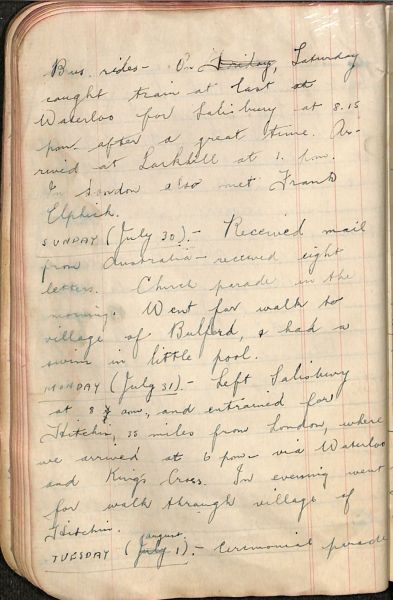 Bus rides – On Friday, Saturday
caught train at last at
Waterloo for Salisbury at 8.15
p.m. after a great time. Ar-
rived at Larkhill at 1. p.m.
In London also met Frank
Elphick.
SUNDAY (July 30).– Received mail
from Australia – received eight
letters. Church parade in the
morning. Went for walk to
village of Bulford, & had a
swim in little pool.
MONDAY (July 31).– Left Salisbury
at 8 am, and entrained for
Hitchin, 35 miles from London, where
we arrived at 6 p.m. via Waterloo
and Kings Cross. In evening went
for walk through village of
Hitchin.
august
TUESDAY (July 1).– Ceremonial parade